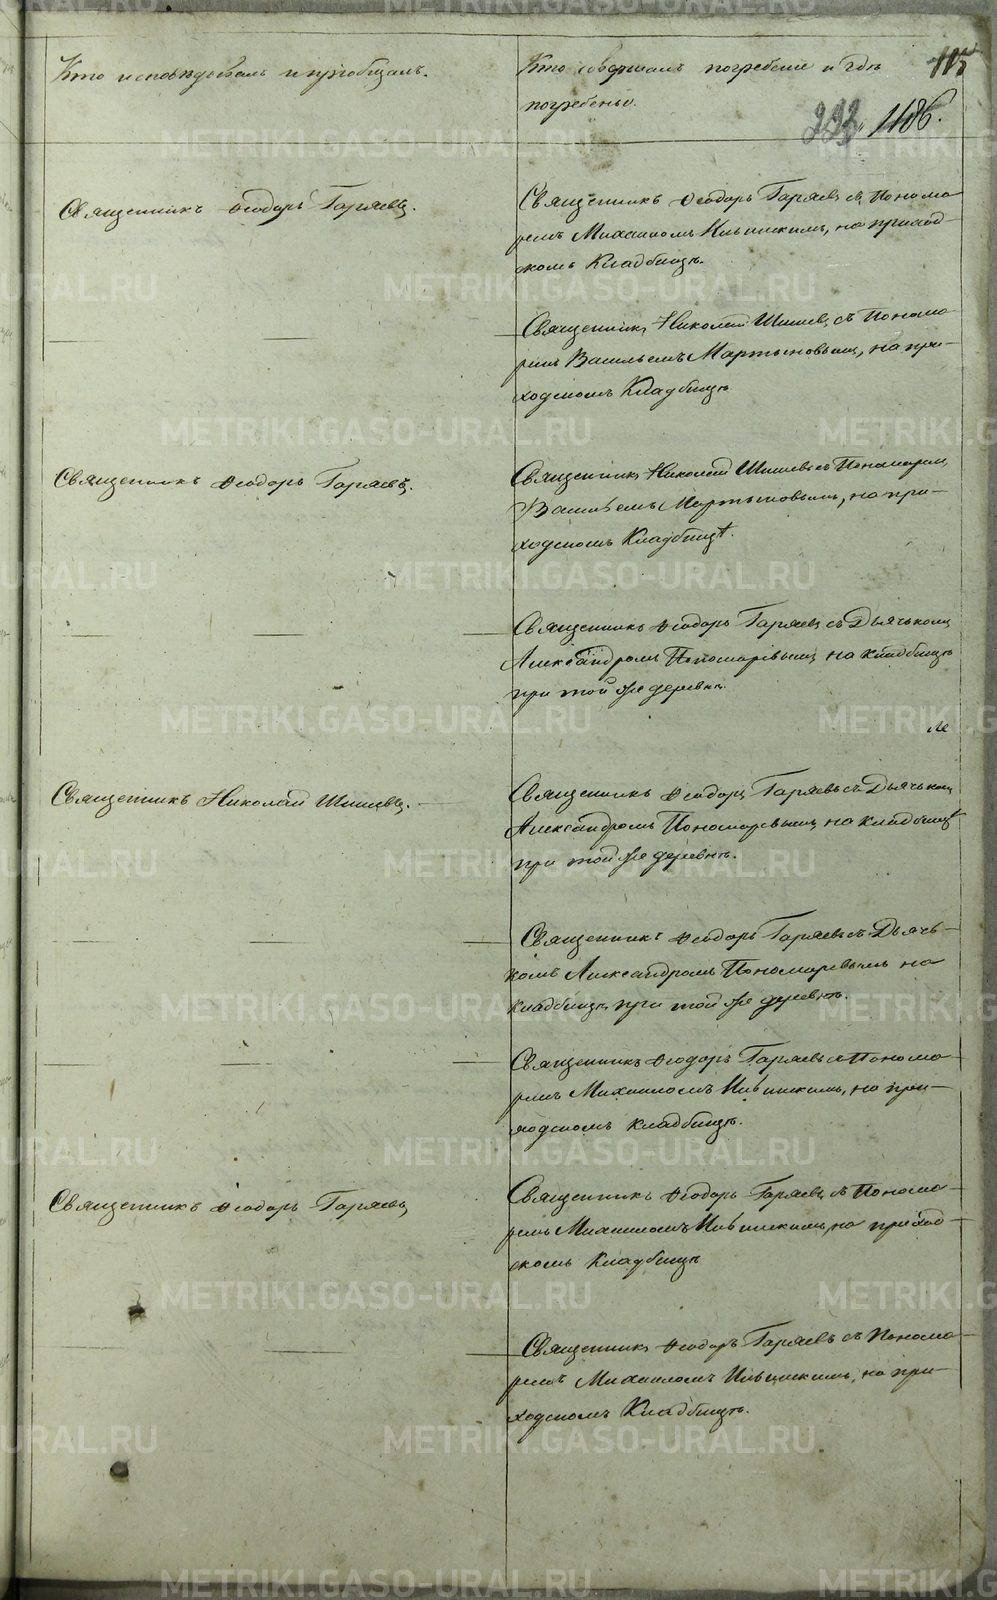 Кто исповѣдывалъ и пріобщалъ.
Кто совершалъ погребеніе и гдѣ
погребены.
115
232. 1186.
Священникъ Ѳеодоръ Гаряевъ.
Священникъ Ѳеодоръ Гаряевъ съ Понома-
ремъ Михаиломъ, на приход-
скомъ Кладбищѣ.
Священникъ Николай Шишевъ съ Понома-
ремъ Васильемъ Мартыновымъ, на при-
ходскомъ Кладбищѣ
Священникъ Ѳеодоръ Гаряевъ.
Священникъ Николай Шишевъ съ Пономаремъ
Васильемъ Мартыновымъ, на при-
ходскомъ Кладбищѣ.
Священникъ Ѳеодоръ Гаряевъ съ Дьячькомъ
Александромъ Пономаревымъ на кладбищѣ
при той же деревнѣ.
Священникъ Николай Шишевъ.
Священникъ Ѳеодоръ Гаряевъ съ Дьячькомъ
Александромъ Пономаревымъ на кладбищѣ
при той же деревнѣ.
Священникъ Ѳеодоръ Гаряевъ съ Дьячь-
комъ Александромъ Пономаревымъ на
кладбищѣ при той же деревнѣ.
Священникъ Ѳеодоръ Гаряевъ съ Понома-
ремъ Михаиломъ, на при-
ходскомъ кладбищѣ.
Священникъ Ѳеодоръ Гаряевъ
Священникъ Ѳеодоръ Гаряевъ съ Понома-
ремъ Михаиломъ на приход-
скомъ Кладбищѣ
Священникъ Ѳеодоръ Гаряевъ съ Понома-
ремъ Михаиломъ, на при-
ходскомъ Кладбищѣ.
METRIKI.GASO-URAL.RU